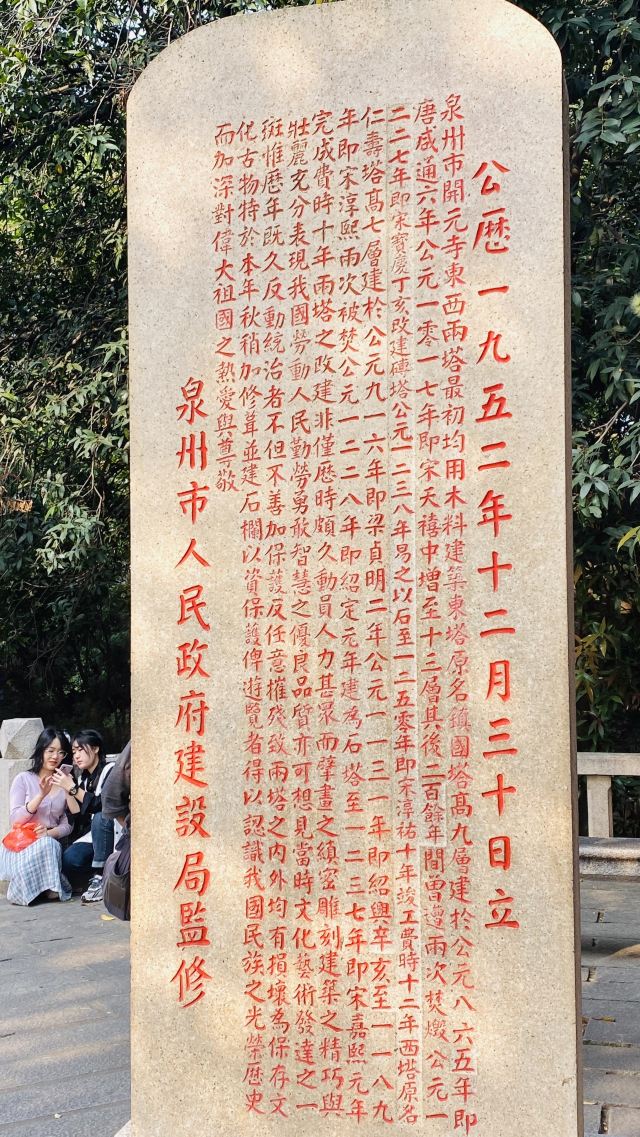 公曆一九五二年十二月三十日立
泉州市開元寺東西兩塔最初均用木料建築東塔原名鎮國塔高九層建於公元八六五年即
唐咸通六年公元一零一七年即宋天禧中增至十三層其後二百餘年間曾遭兩次焚燬公元一
二二七年即宋寶慶丁亥改建磚塔公元一二三八年易之以石至一二五零年即宋淳祐十年竣工費時十二年西塔原名
仁壽塔高七層建於公元九一六年即梁貞明二年公元一一三一年即紹興辛亥至一一八九
年即宋淳熙兩次被焚公元一二二八年即紹定元年建為石塔至一二三七年即宋嘉熙元年
完成費時十年兩塔之改建非僅歷時頗久動員人力甚眾而擘畫之縝密雕刻建築之精巧與
壯麗充分表現我國勞動人民勤勞勇敢智慧之優良品質亦可想見當時文化藝術發達之一
斑惟歷年既久反動統治者不但不善加保護反任意摧殘致兩塔之內外均有損壞為保存文
化古物特於本年秋稍加修葺並建石欄以資保護俾遊覽者得以認識我國民族之光榮歷史
而加深對偉大祖國之熱愛與尊敬
泉州市人民政府建設局監修